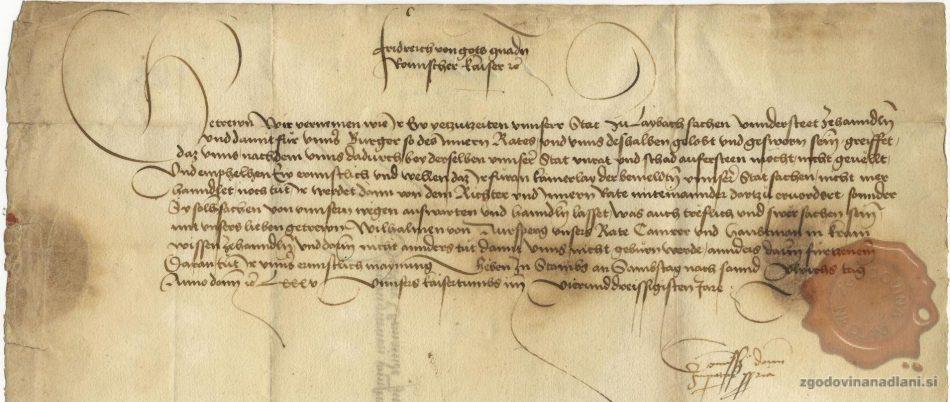 Fridreich von gots gnadn
Romischer kaiser etc
Getrewn Wir vernemen wie Ir Ew yetzuzeiten unnsere Stat zu Laybach sachen unndersteet zehanndln
und damit für unns Burger so des Innern Rates und unns deshalben gelobt und gesworn sein greiffet
daz unns nachdem unns dadurch bey derselben unnser Stat unrat und schad aufersteen mocht nicht gevellt
Und emphelhen Ew ernnstlich und wellen daz Ir füran kainerlay der bemeldtn unnser Stat sachen nicht mer
hanndlet noch tut Ir werdet dann von dem Richter und Innern Rate miteinannder dartzu ervordert sonnder
Sy solh sachen von unnsern wegen auswarten und hanndln lasset was auch treflich und swer sachen sein
mit unsers lieben getrewen Wilhalmen von Aursperg unsers Rate Camrer und haubtman in Krain
wissen zehanndln und darin nicht annders tut damit unns nicht gebüren werde annders darin fürzenemen
Daran tut Ir unns ernnstlich maynung Geben zu Stambs an Sambstag nach sannd Ulreichs tag
Anno domini etc Lxxxv Unnsers kaisertumbs im Vierunddreissigisten Jare
zgodovinanadlani.si